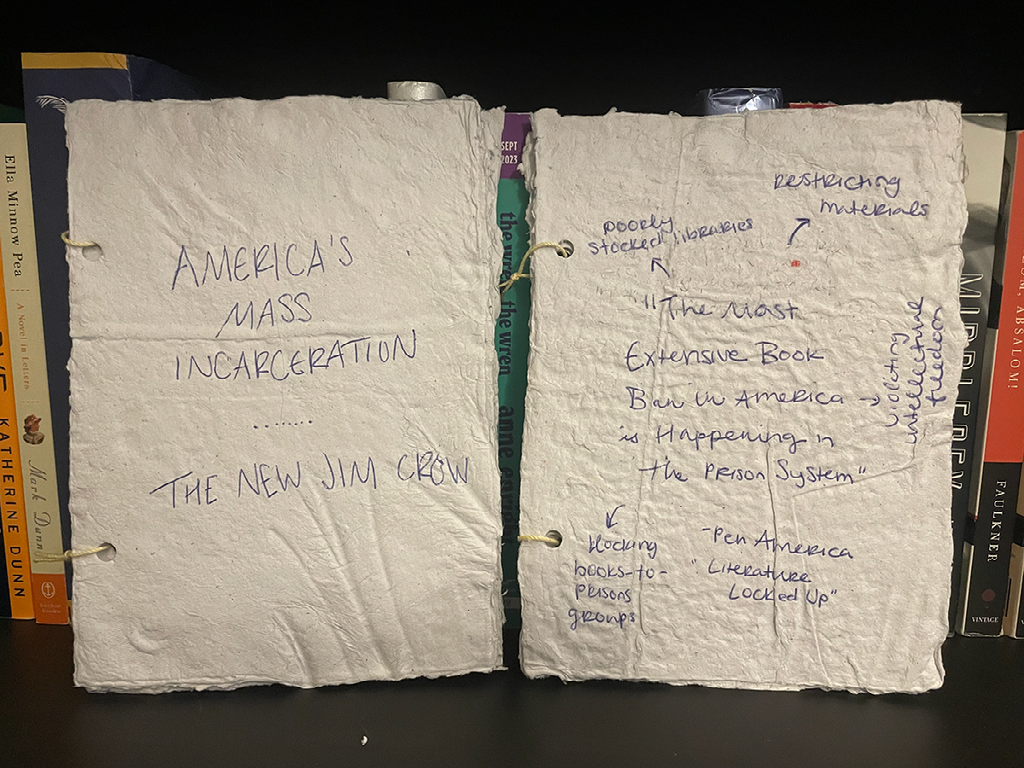 Ella Minnow Pea
A Novel in Letters
Mark Dunn
KATHERINE DUNN
AMERICA'S
MASS
INCARCERATION
.......
THE NEW JIM CROW
SEPT
2023
the wren the wren
anne
restricting
materials
poorly
stocked libraries
"The Most
Extensive Book
Ban in America →
is Happening in
the Prison System"
violating
intellectual
freedom
blocking
books-to-
prisons
groups
-Pen America
"Literature
Locked Up"
ABSALOM!
FAULKNER
VINTAGE